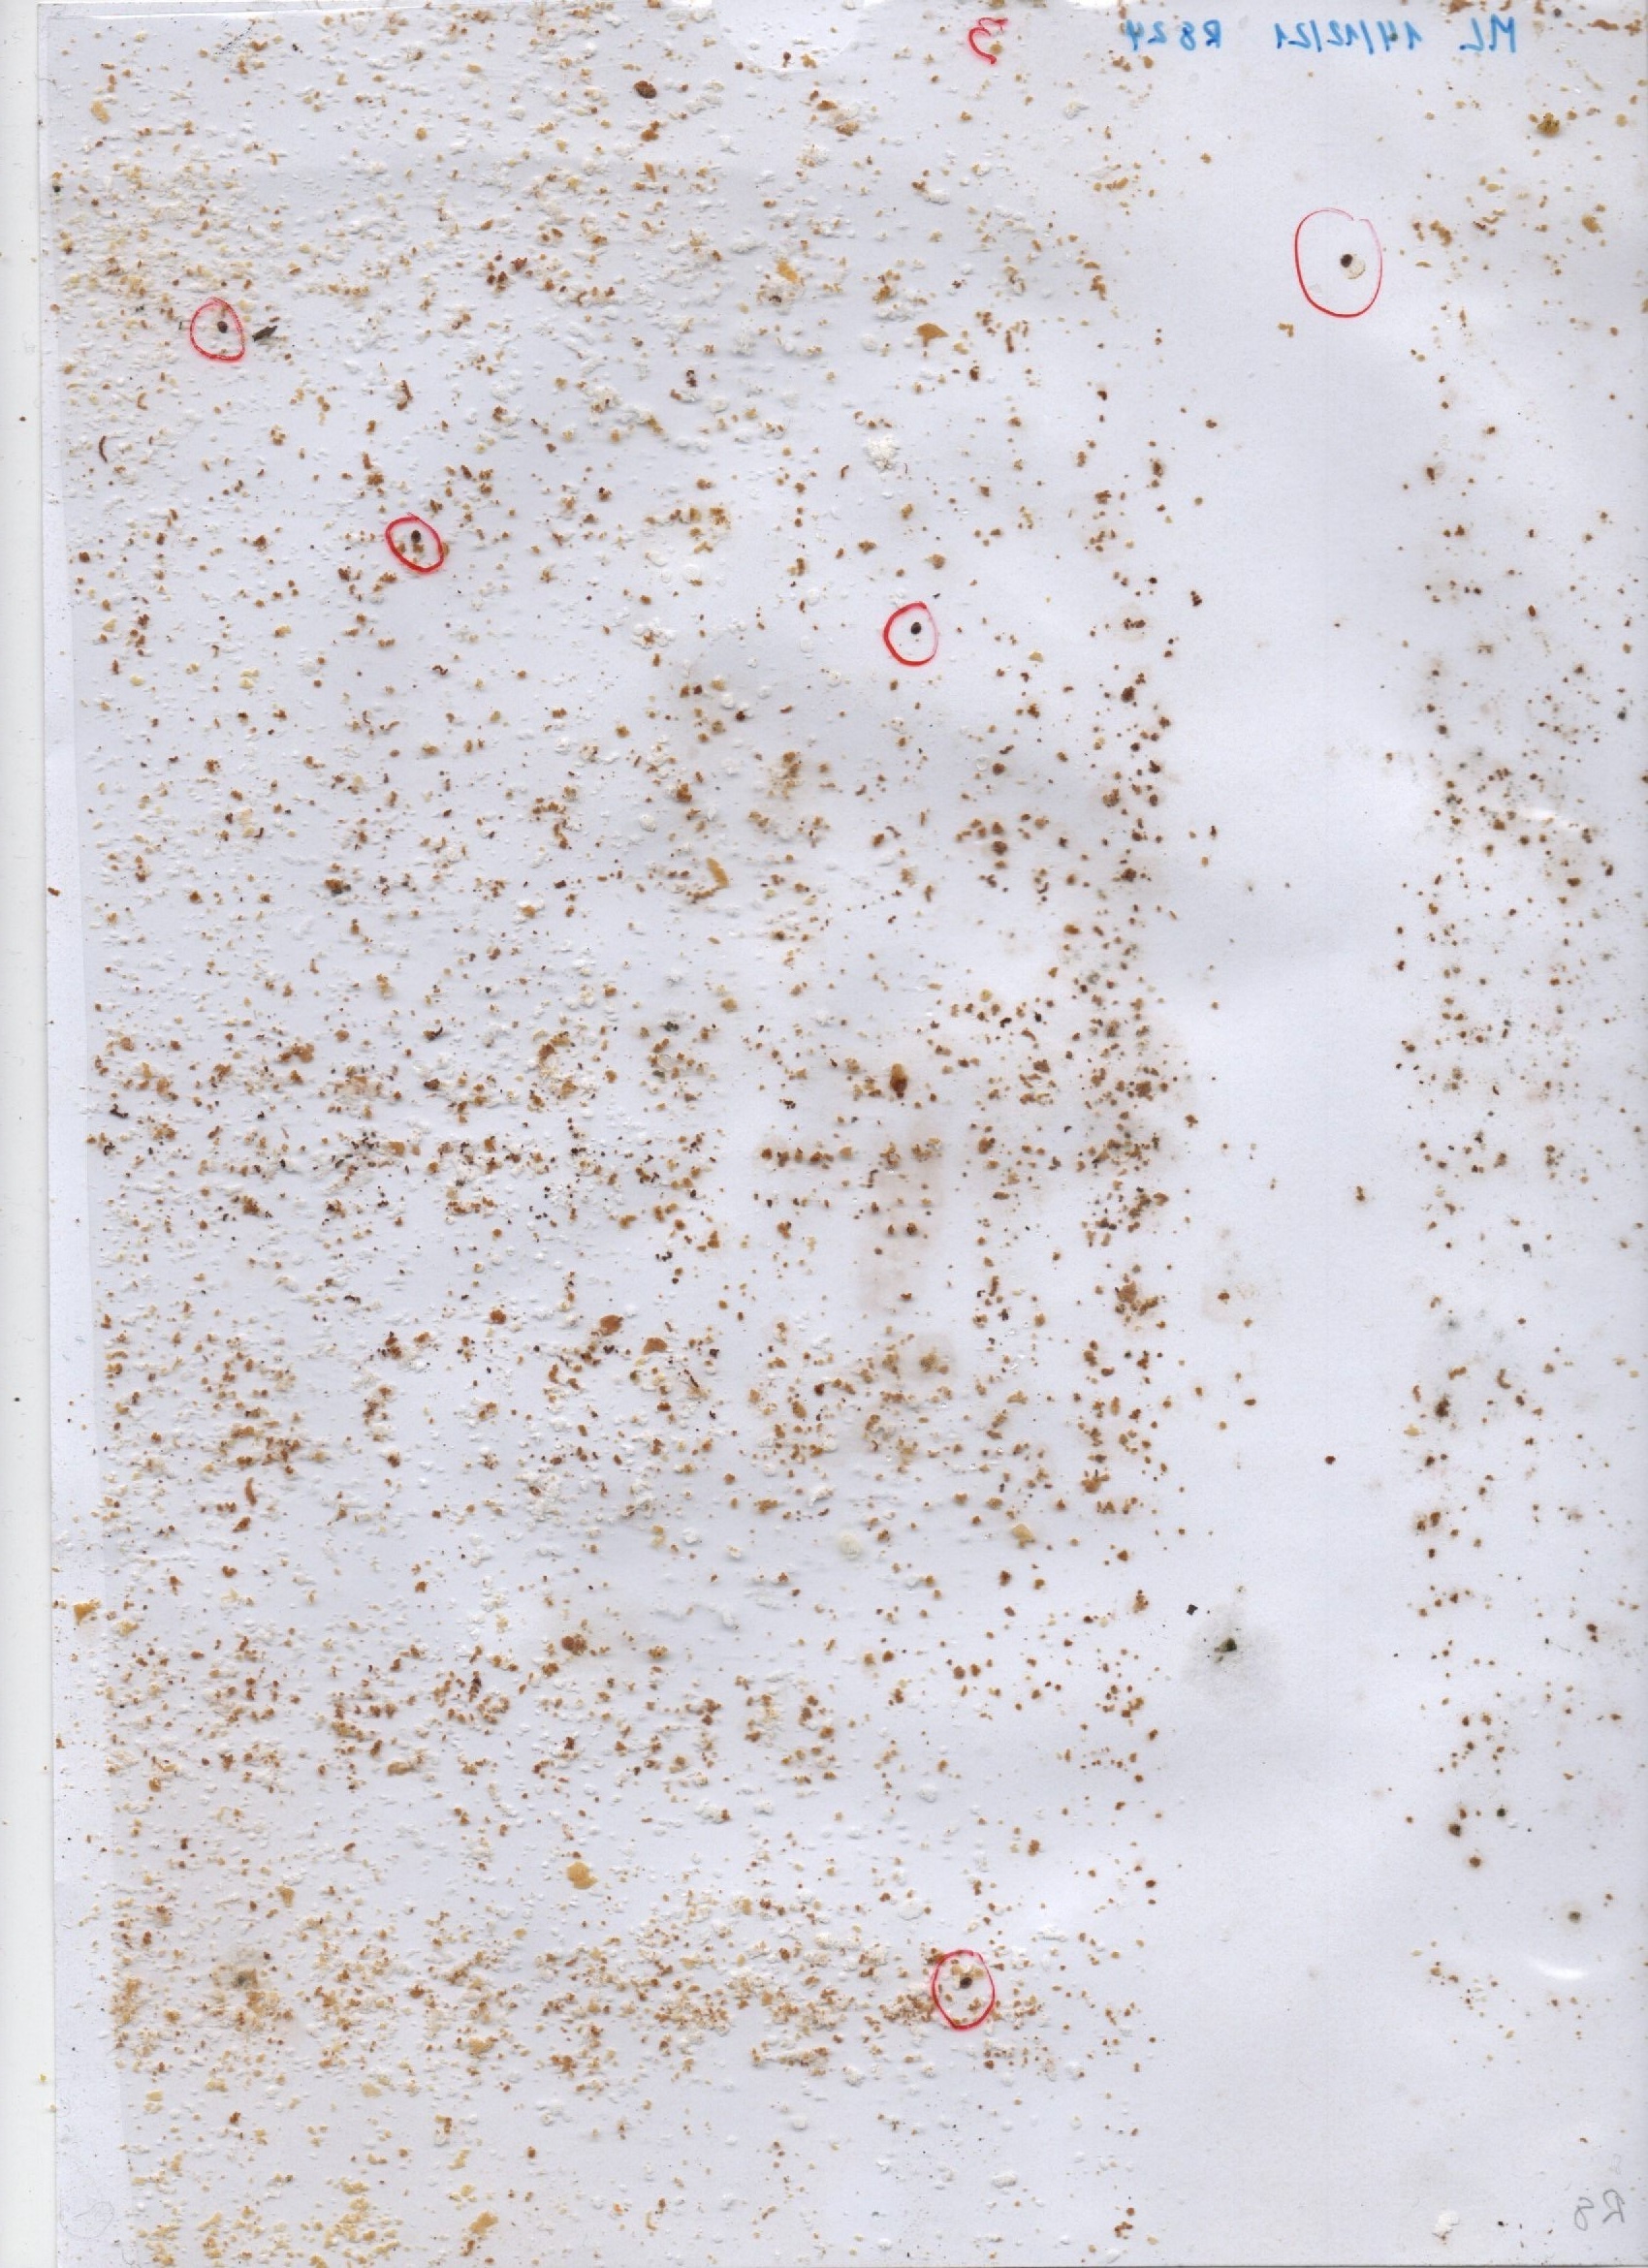 ML 14/12/21 R824 5
R8